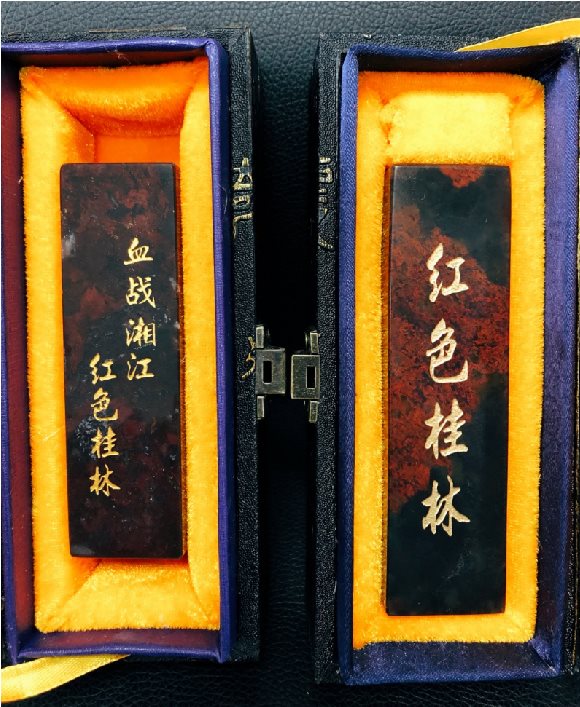 血战湘江
红色桂林
红色桂林